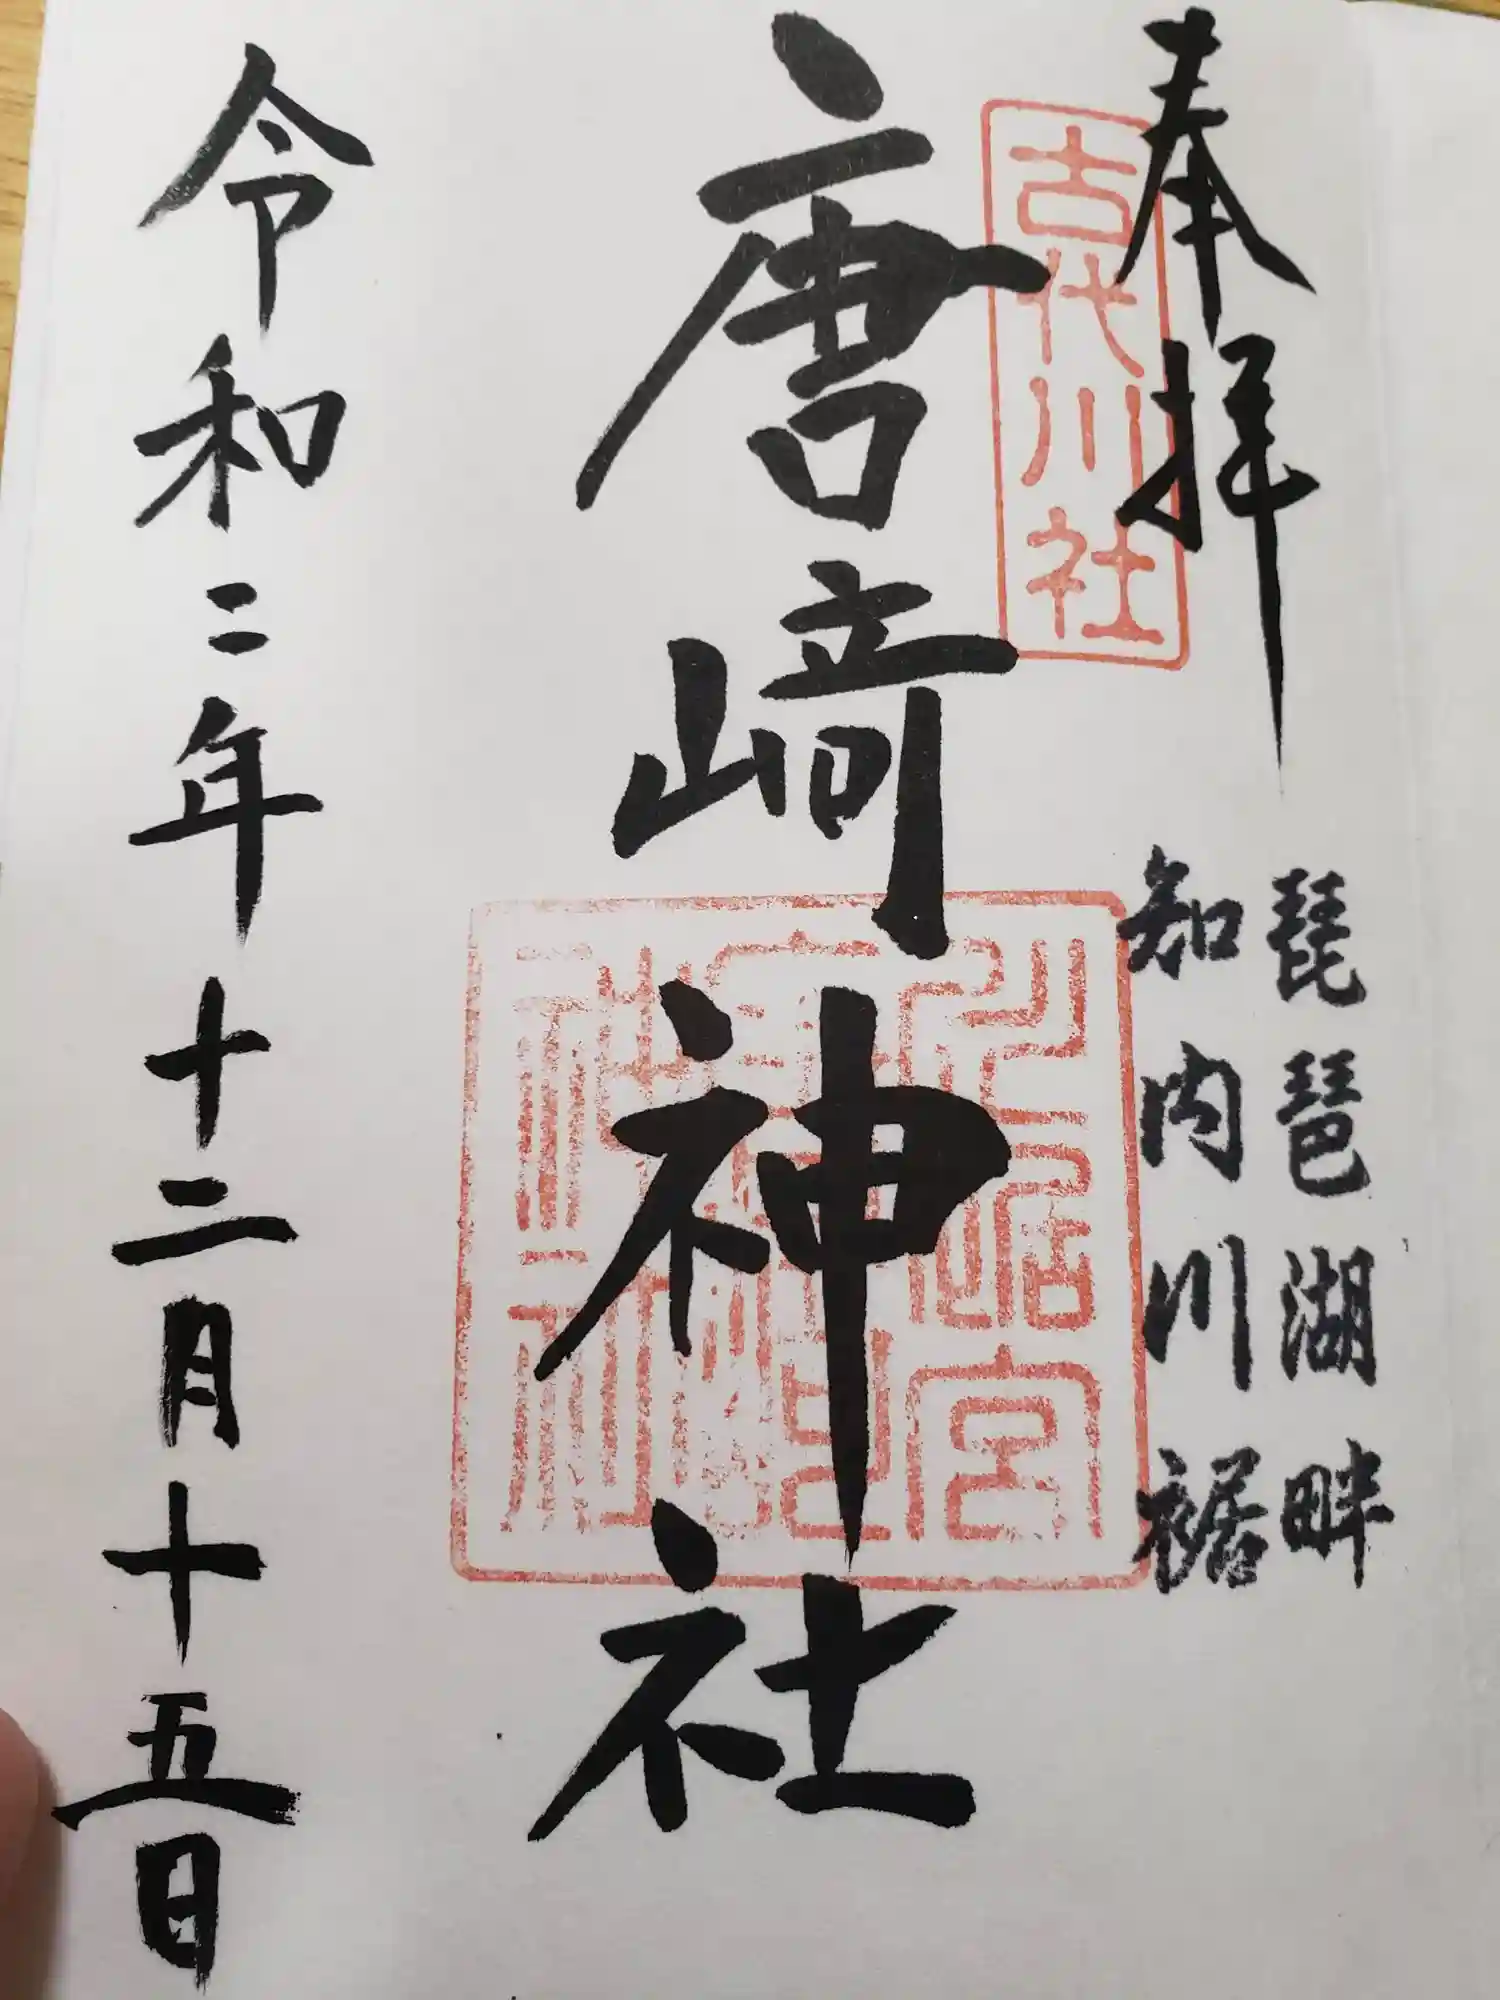 奉拝
古代川社
琵琶湖畔
知内川裾
唐﨑神社
令和二年十二月十五日